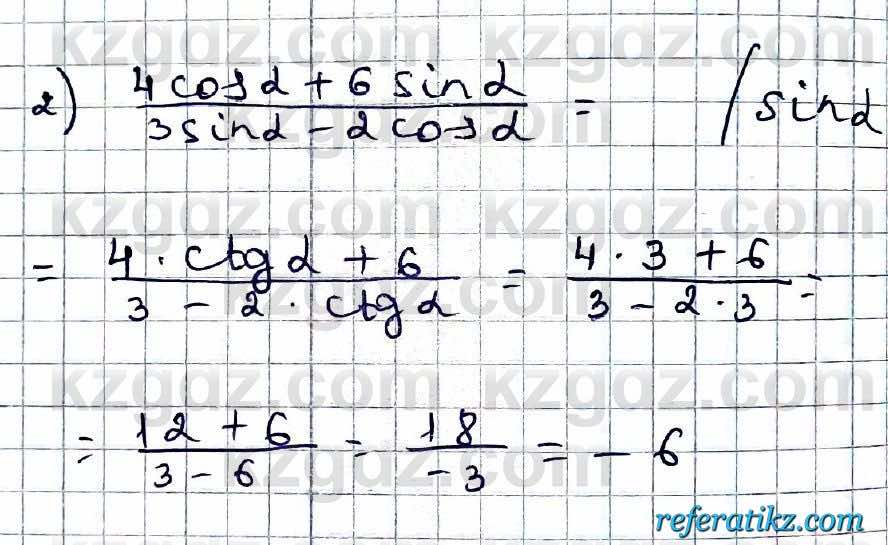 2) (4cosα + 6sinα)/(3sinα - 2cosα) = / sinα
= (4 · ctgα + 6)/(3 - 2 · ctgα) = (4 · 3 + 6)/(3 - 2 · 3) =
= (12 + 6)/(3 - 6) = 18/(-3) = - 6
kzgdz.com kzgdz.com
kzgdz.com kzgdz.com
kzgdz.com kzgdz.com
kzgdz.com kzgdz.com
referatikz.com